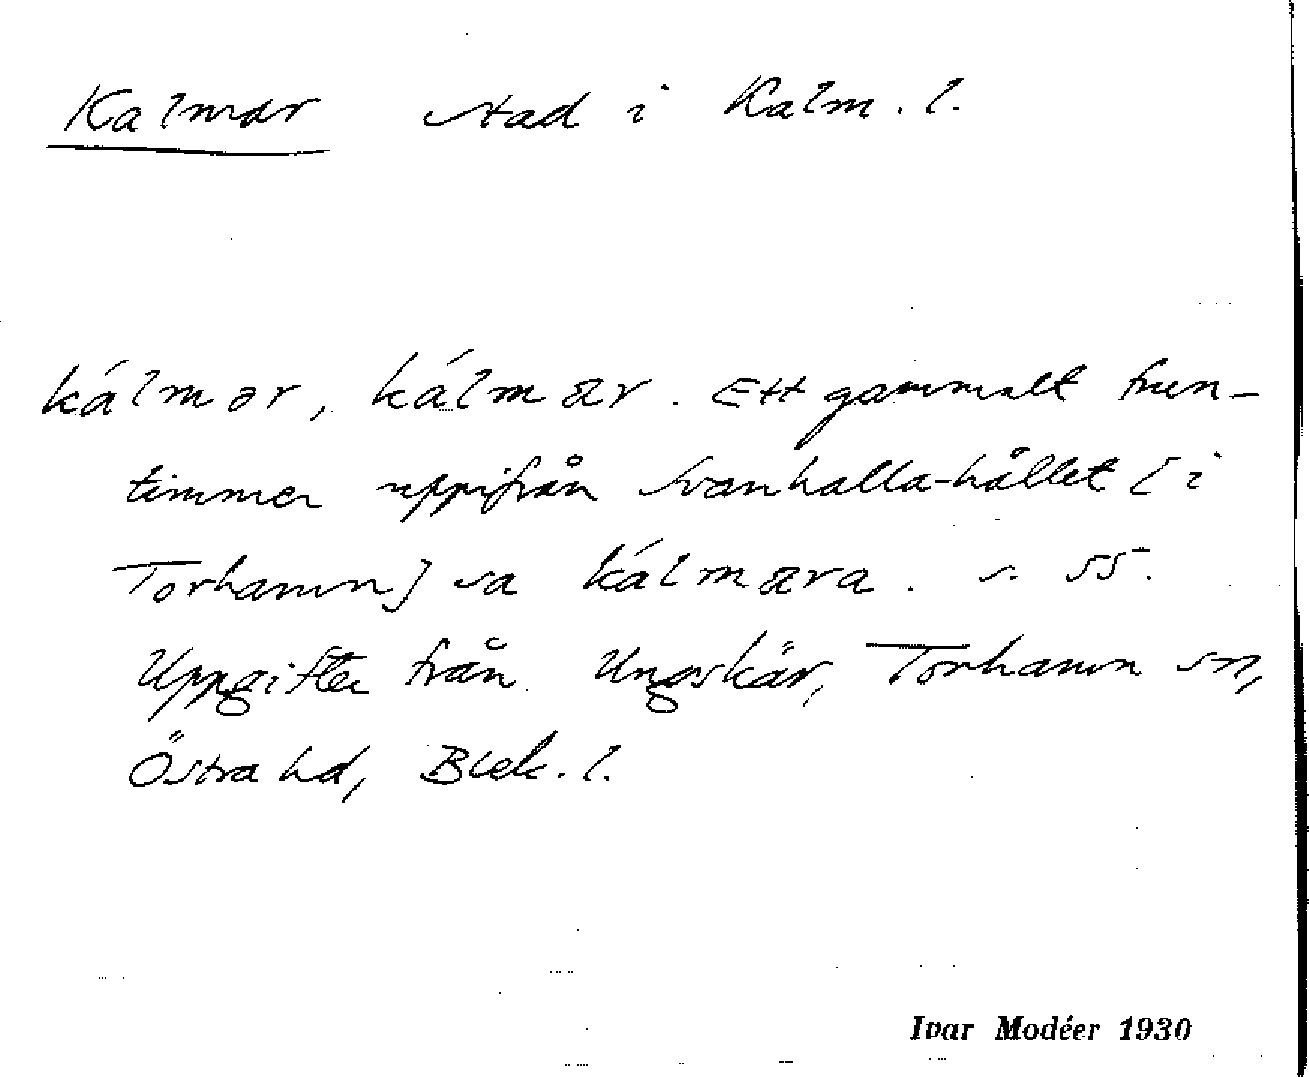 Kalmar stad i Kalm. l.
kálmar, kálmær. Ett gammalt frun-
timmer uppifrån Svanhalla-hållet [i
Torhamn] sa kálmæra. s. 55.
Uppgifter från Ungskär, Torhamn sn,
Östra hd, Blek. l.
Ivar Modéer 1930